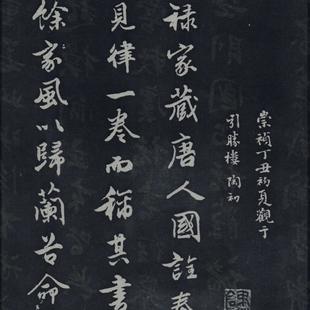 崇禎丁丑初夏觀于
引勝樓 陶初
祿家藏唐人國詮善
見律一卷而稱其書
餘家風以歸蘭谷